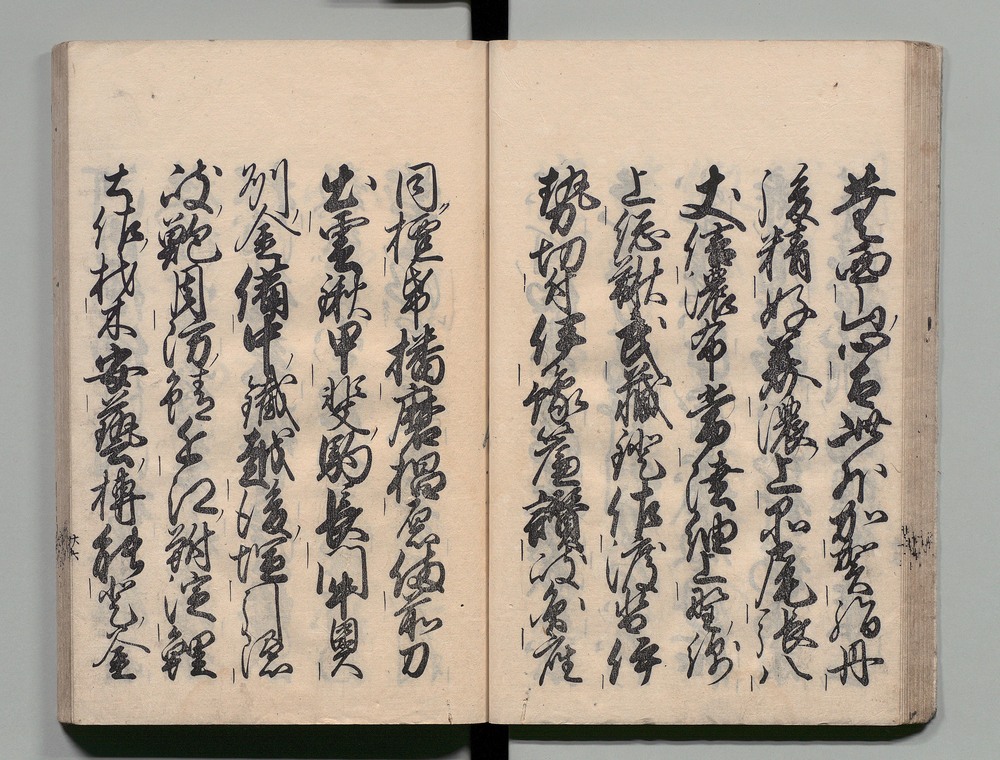 蕪西山心太此外加賀絹丹
後精好美濃上品尾張八
丈信濃布常陸紬上野綿
上総鞦武蔵鐙佐渡沓伊
勢切付伊豫簾讃岐円座
同檀帋播磨椙原備前刀
出雲鍬甲斐駒長門牛奥
州金備中鐵越後塩引隠
岐鮑周防鯖近江鮒淀鯉
土佐材木安藝榑能登釜